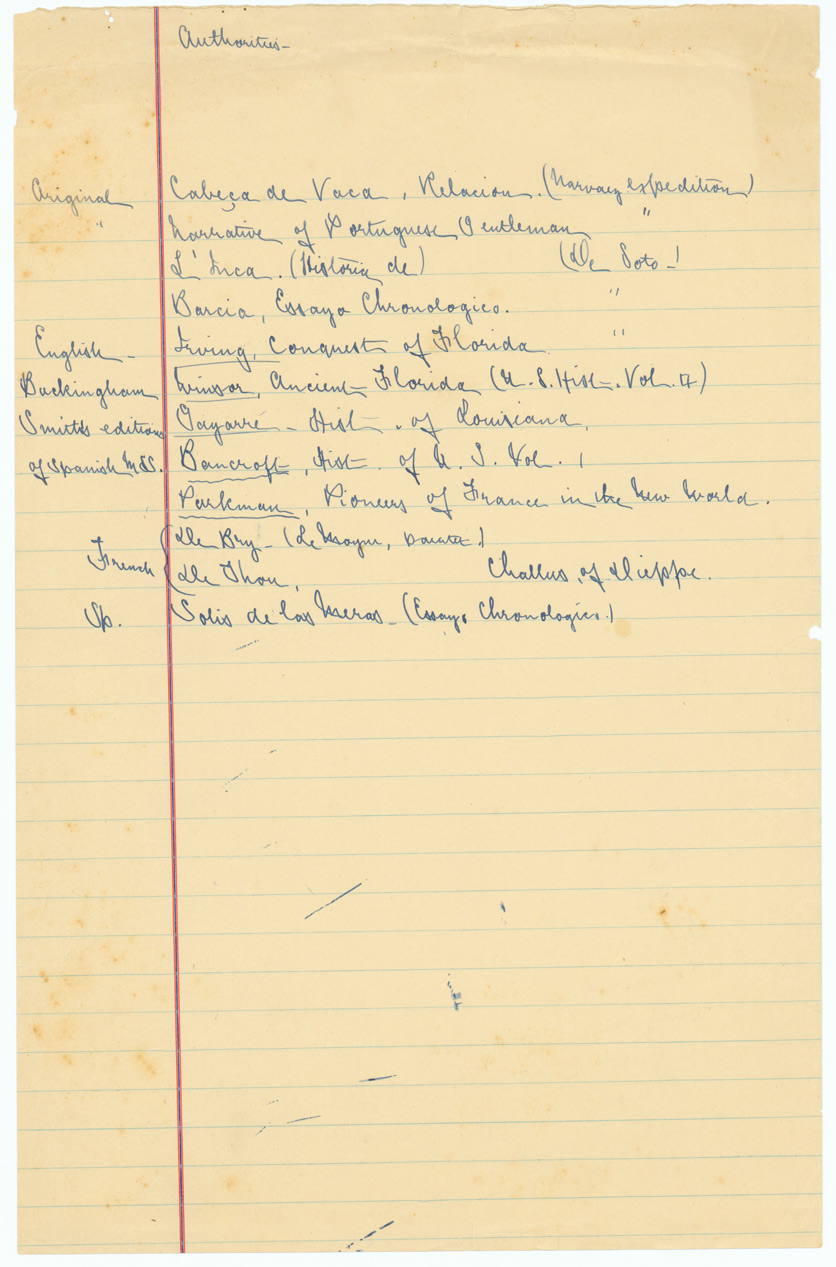 Authorities-
Original Cabeça de Vaca, Relacion. (Narvaez expedition)
" Narrative of Portuguese Gentleman "
L'Inca. (Historia de) (De Soto-)
Barcia, Essayo Chronologico. "
English- Irving, Conquest of Florida "
Buckingham Winsor, Ancient Florida (U.S. Hist. Vol. 4)
Smith's editions Gayarré- Hist. of Louisiana,
of Spanish MSS. Bancroft, Hist. of U.S. Vol. 1
Parkman, Pioneers of France in the New World.
French De Bry- (Le Moyne, )
De Thou, Challus, of Dieppe.
Sp. Solis de las Meras- (Essayo Chronologico.)